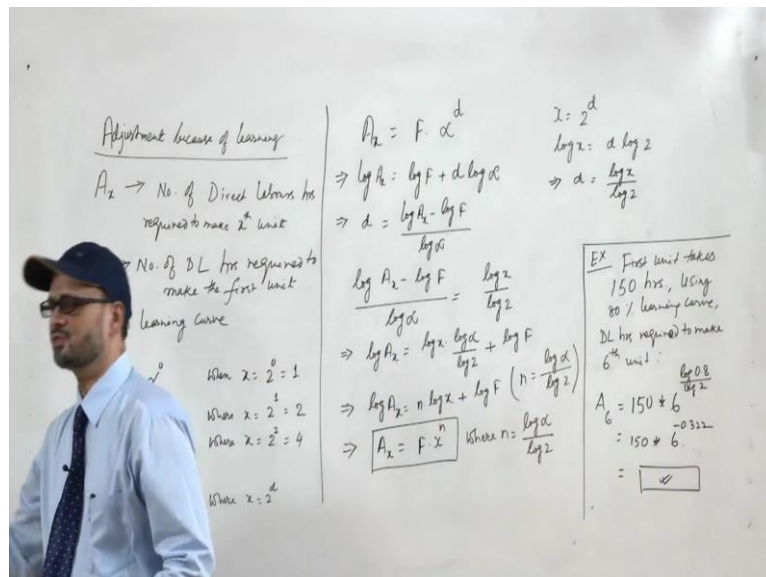 Adjustment because of learning
Aₓ → No. of Direct labours hrs
required to make xᵗʰ unit
→ No. of DL hrs required to
make the first unit
learning curve
when x = 2⁰ = 1
where x = 2¹ = 2
where x = 2² = 4
where x = 2ᵈ
Aₓ = F · α^d
⇒ log Aₓ = log F + d log α
⇒ d = (log Aₓ - log F) / log α
(log Aₓ - log F) / log α = log x / log 2
⇒ log Aₓ = log x · log α / log 2 + log F
⇒ log Aₓ = n log x + log F (n = log α / log 2)
⇒ Aₓ = F · xⁿ where n = log α / log 2
x = 2^d
log x = d log 2
⇒ d = log x / log 2
EX First unit takes
150 hrs., Using
80 % learning curve,
DL hrs required to make
6ᵗʰ unit :
A₆ = 150 * 6^(log 0.8 / log 2)
= 150 * 6^(-0.322)
=